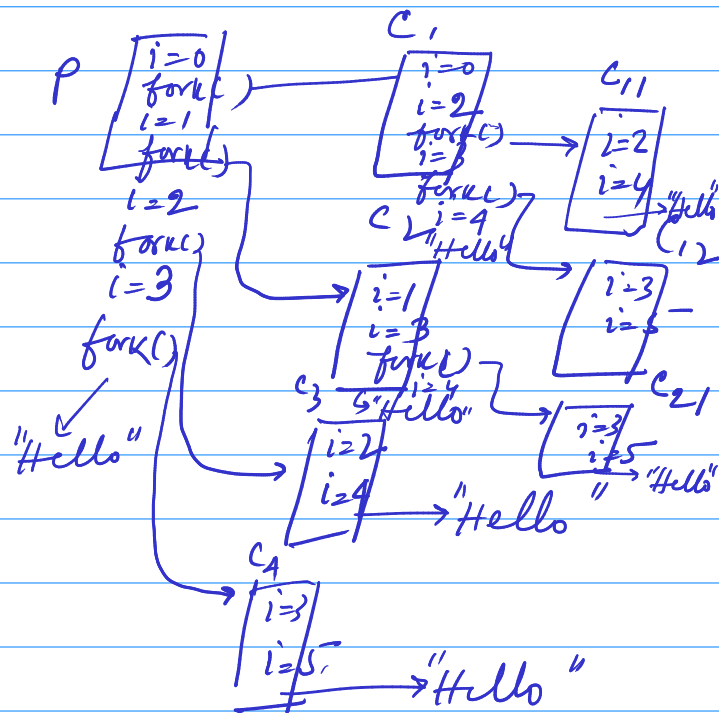 P
i=0
fork()
i=1
fork()
i=2
fork()
i=3
fork()
"Hello"
C1
i=0
i=2
fork()
i=3
fork()
i=4
"Hello"
C11
i=2
i=4
"Hello"
C12
i=3
i=5
C2
i=1
i=3
fork()
i=4
5 "Hello"
C21
i=3
i=5
"Hello"
C3
i=2
i=4
"Hello"
C4
i=3
i=5
"Hello"